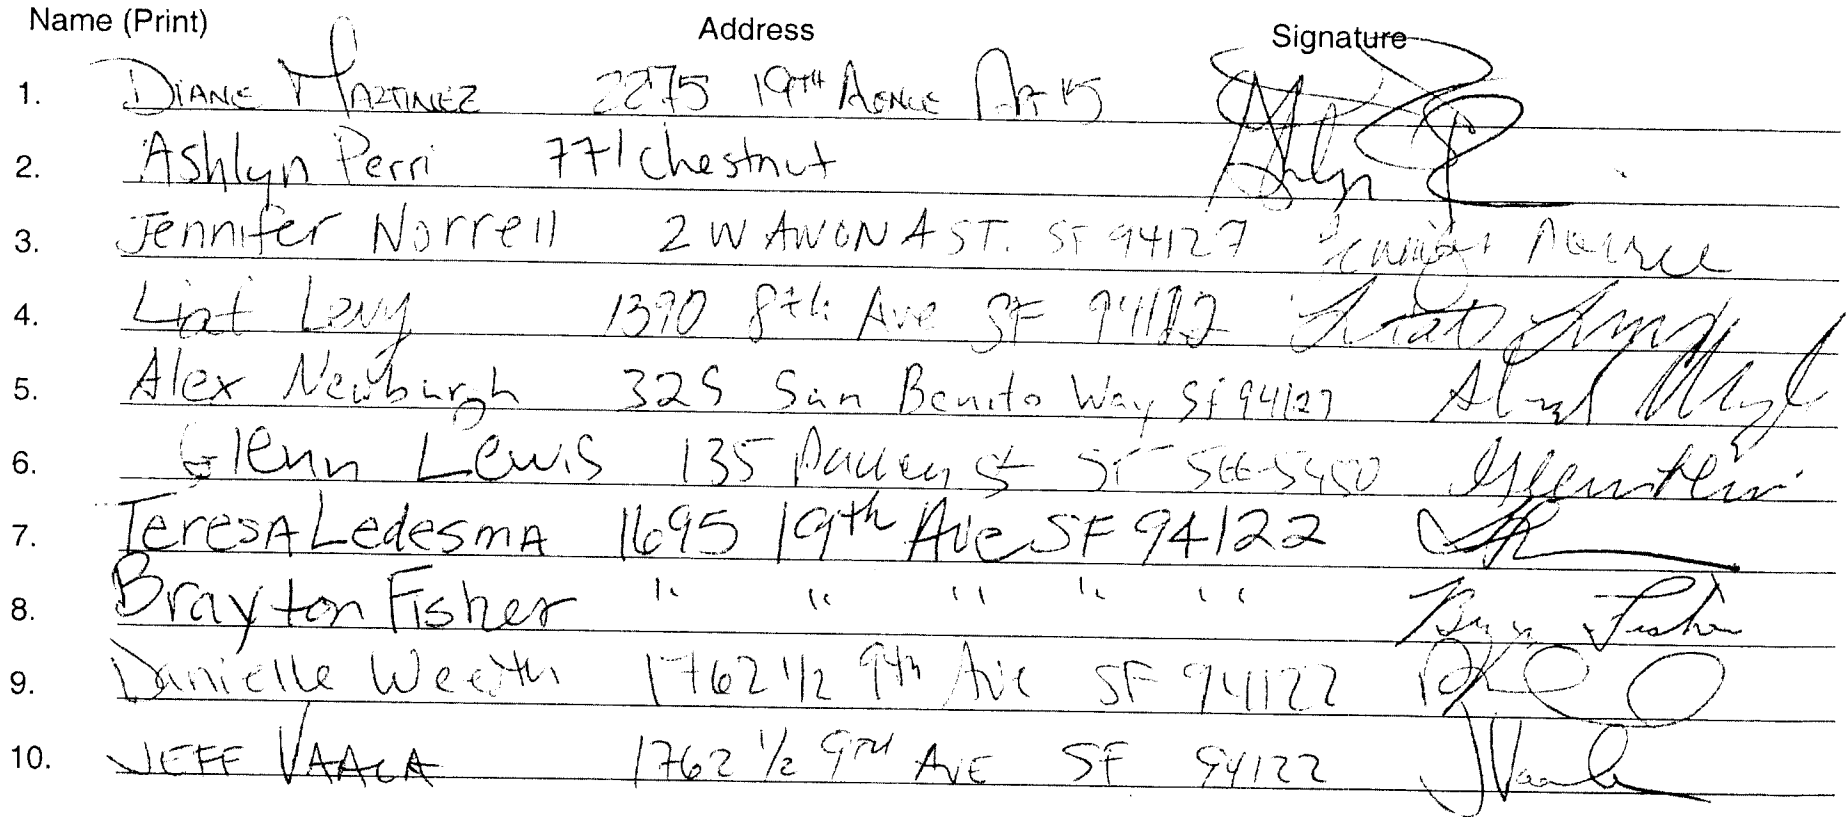 Name (Print) Address Signature
1. DIANE MARTINEZ 2275 19TH AENUE APT
2. Ashlyn Perri 771 Chestnut
3. Jennifer Norrell 2 WAWONA ST. SF 94127
4. Liat Levy 1390 8th Ave SF 94122 Liat Levy
5. Alex Newburgh 325 San Benito Way SF 94127
6. Glenn Lewis 135 St SF
7. TeresA LedesmA 1695 19th Ave SF 94122
8. Brayton Fisher " " " " " Fisher
9. Danielle Weeth 1762 1/2 9th Ave SF 94122
10. JEFF VAALA 1762 1/2 9TH AVE SF 94122 JVaala